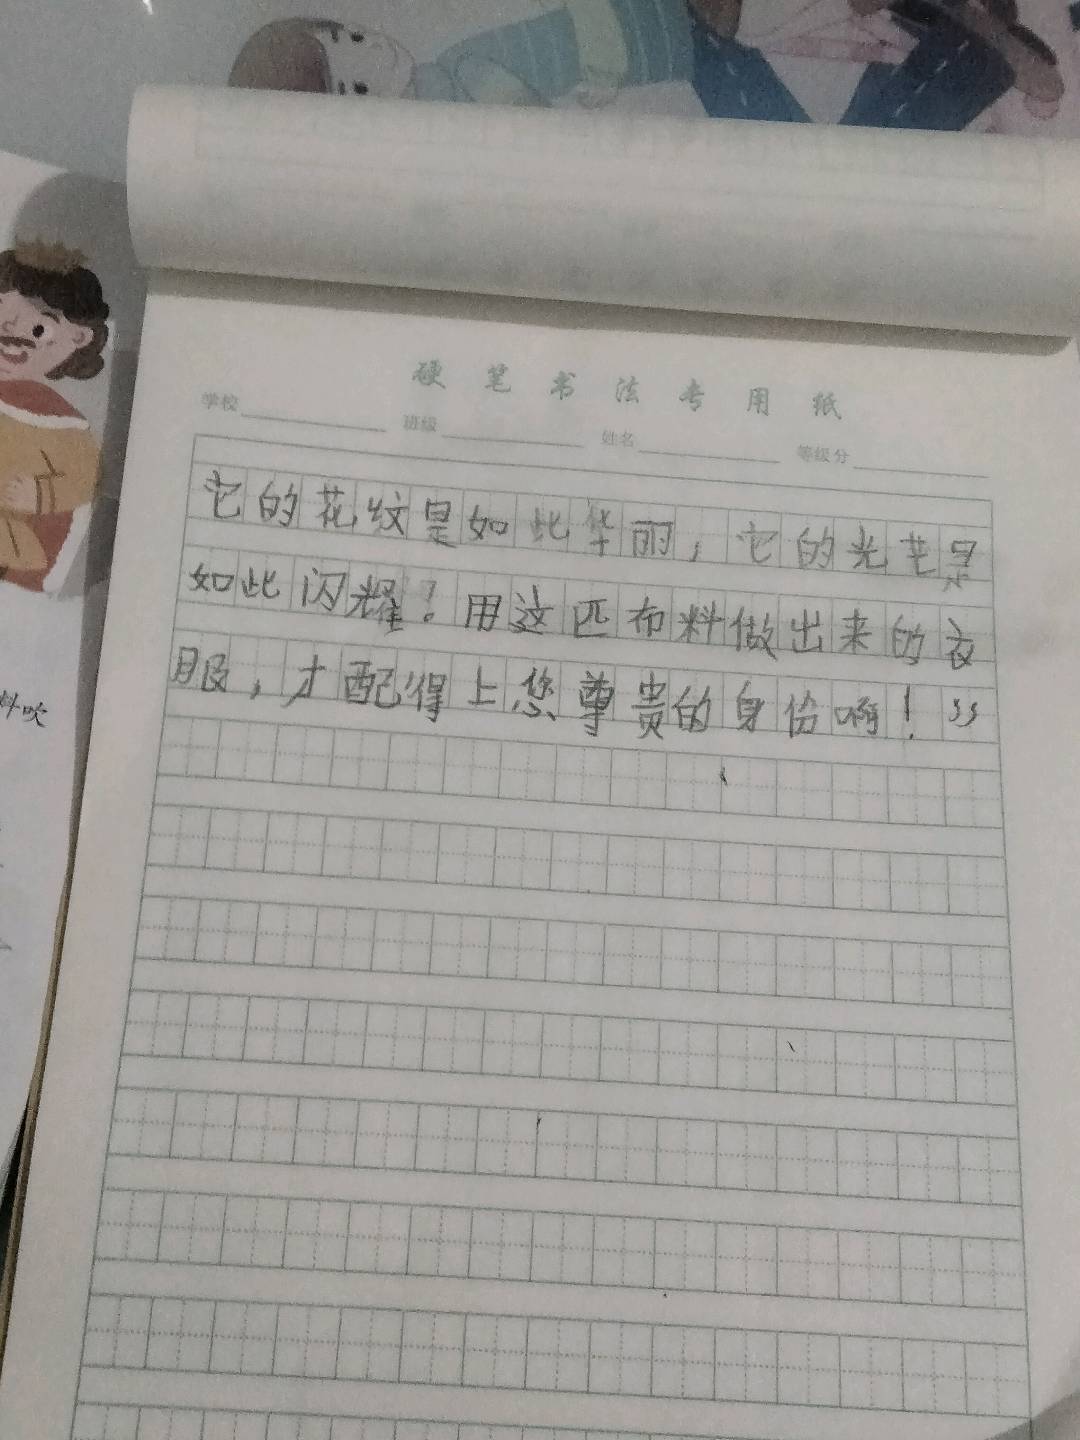 硬笔书法专用纸
学校 班级 姓名 等级分
它的花纹是如此华丽，它的光芒是
如此闪耀！用这匹布料做出来的衣
服，才配得上您尊贵的身份啊！”
料吹